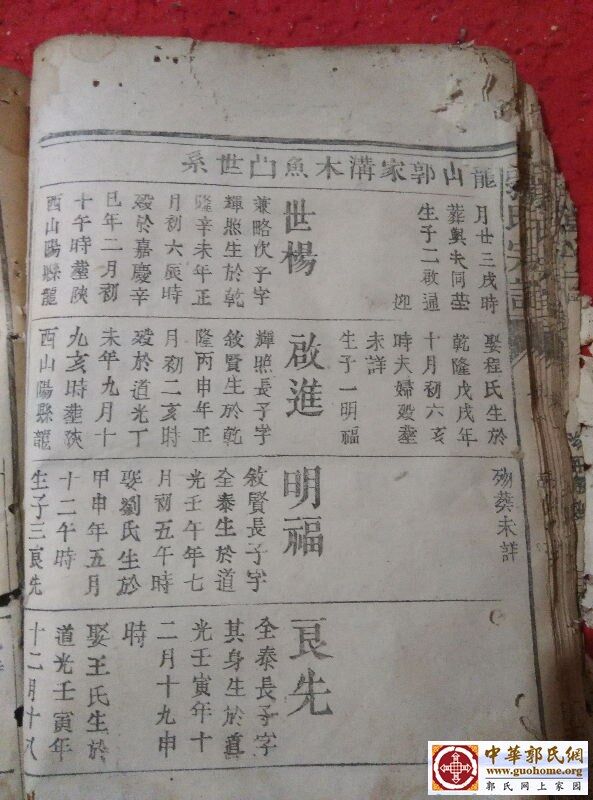 龍山郭家溝木魚凸世系
月廿三戌時
葬與夫同塋
生子二啟進
迎
世楊
兼略次子字
輝照生於乾
隆辛未年正
月初六辰時
歿於嘉慶辛
巳年二月初
十午時塟陝
西山陽縣龍
娶程氏生於
乾隆戊戌年
十月初六亥
時夫婦歿塟
未詳
生子一明福
啟進
輝照長子字
敘賢生於乾
隆丙申年正
月初二亥時
歿於道光丁
未年九月十
九亥時塟陝
西山陽縣龍
歿葬未詳
明福
敘賢長子字
全泰生於道
光壬午年七
月初五午時
娶劉氏生於
甲申年五月
十二午時
生子三良先
良先
全泰長子字
其身生於道
光壬寅年十
二月十九申
時
娶王氏生於
道光壬寅年
十二月十八
中華郭氏網
www.guohome.org
郭氏网上家园